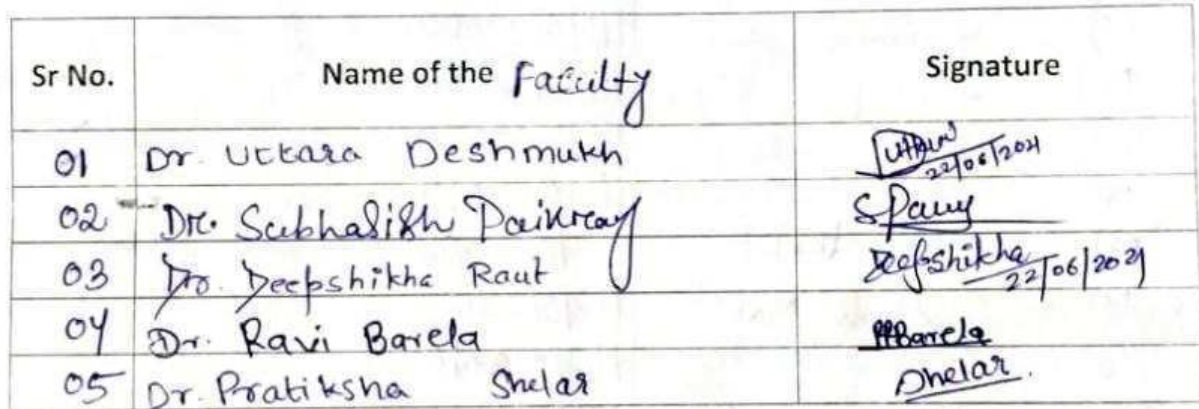 Sr No. Name of the Faculty Signature
01 Dr. Uttara Deshmukh 22/06/2021
02 Dr. Subhasish Paikray SPany
03 Dr. Deepshikha Raut Deepshikha 22/06/2021
04 Dr. Ravi Barela Barela
05 Dr. Pratiksha Shelar Shelar